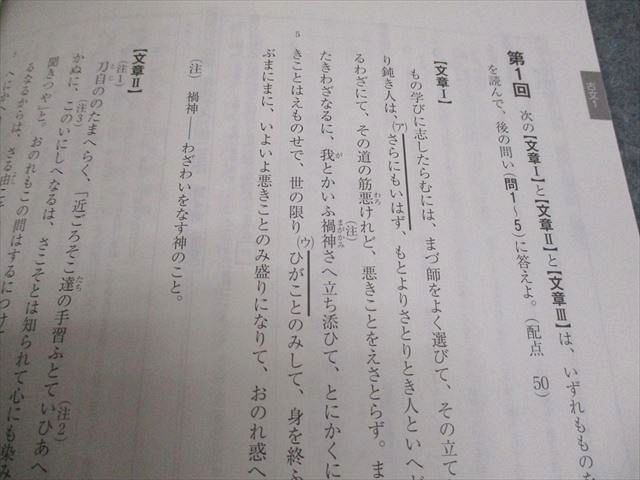 古文1
第1回 次の【文章Ⅰ】と【文章Ⅱ】と【文章Ⅲ】は、いずれもものを
を読んで、後の問い（問1～5）に答えよ。（配点 50）
【文章Ⅰ】
もの学びに志したらむには、まづ師をよく選びて、その立て
り鈍き人は、(ア)さらにもいはず、もとよりさとりとき人といへど
るわざにて、その道の筋悪けれど、悪きことをえさとらず。ま
たきわざなるに、我とかいふ禍神(注)さへ立ち添ひて、とにかくに
5
きことはえものせで、世の限り(ウ)ひがことのみして、身を終ふ
ぶまにまに、いよいよ悪きことのみ盛りになりて、おのれ惑へ
（注） 禍神――わざわいをなす神のこと。
【文章Ⅱ】
(注1)刀自ののたまへらく、「近ごろそこ達の手習ふとていひあへ
かぬに、(注3)このいにしへなるは、さこそとは知られて心にも染み
聞きつや」と。おのれもこの間はするにつけて
るなるからは、さる由